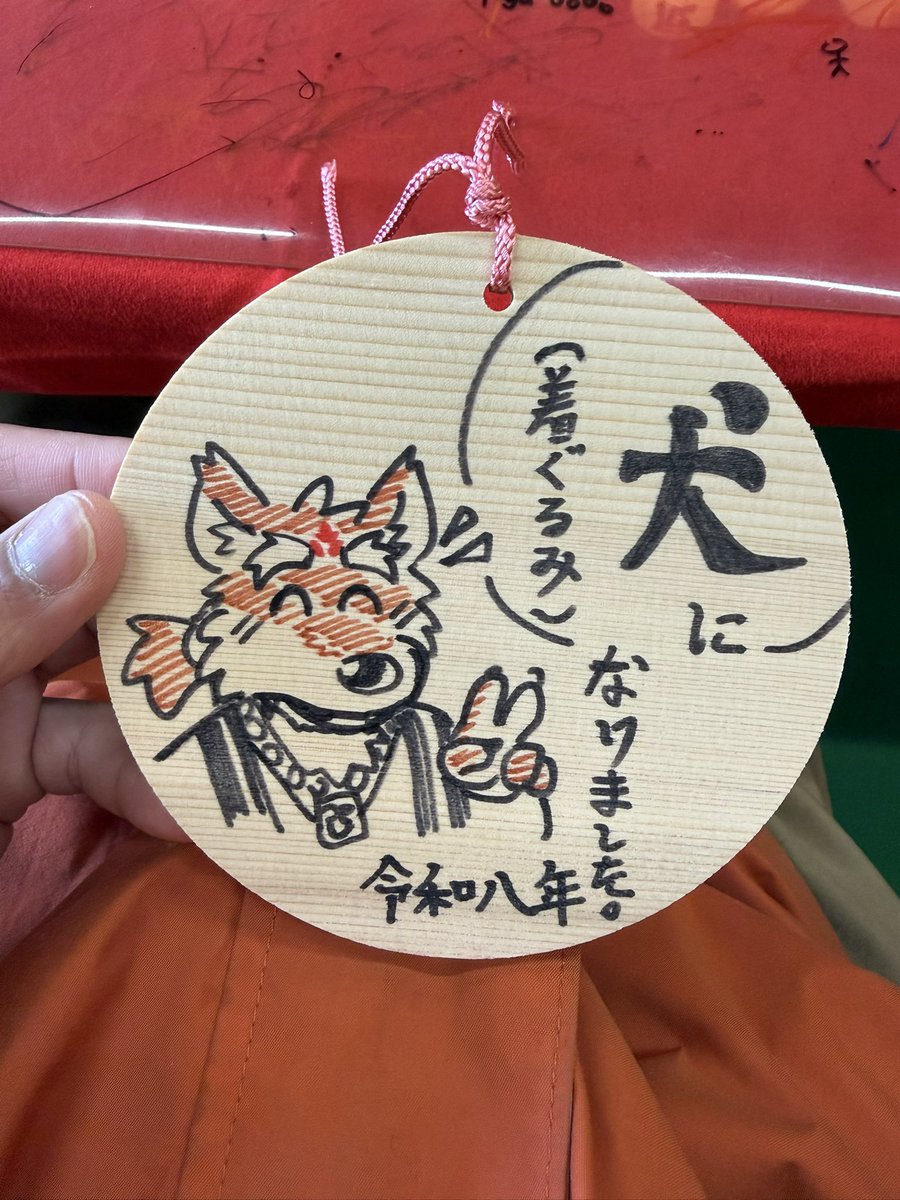 犬に
(着ぐるみ)
なりました。
令和八年
天